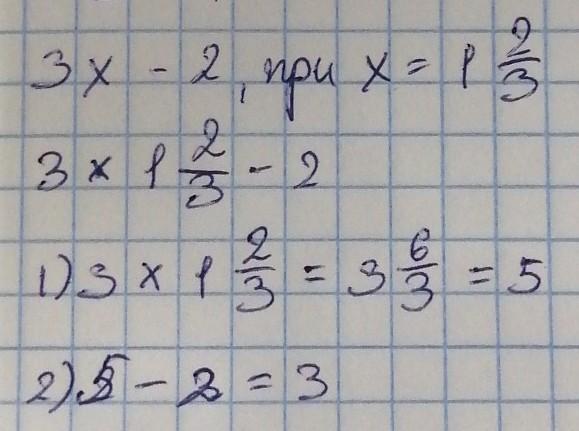 3x - 2, при x = 1 2/3
3 × 1 2/3 - 2
1) 3 × 1 2/3 = 3 6/3 = 5
2) 5 - 2 = 3